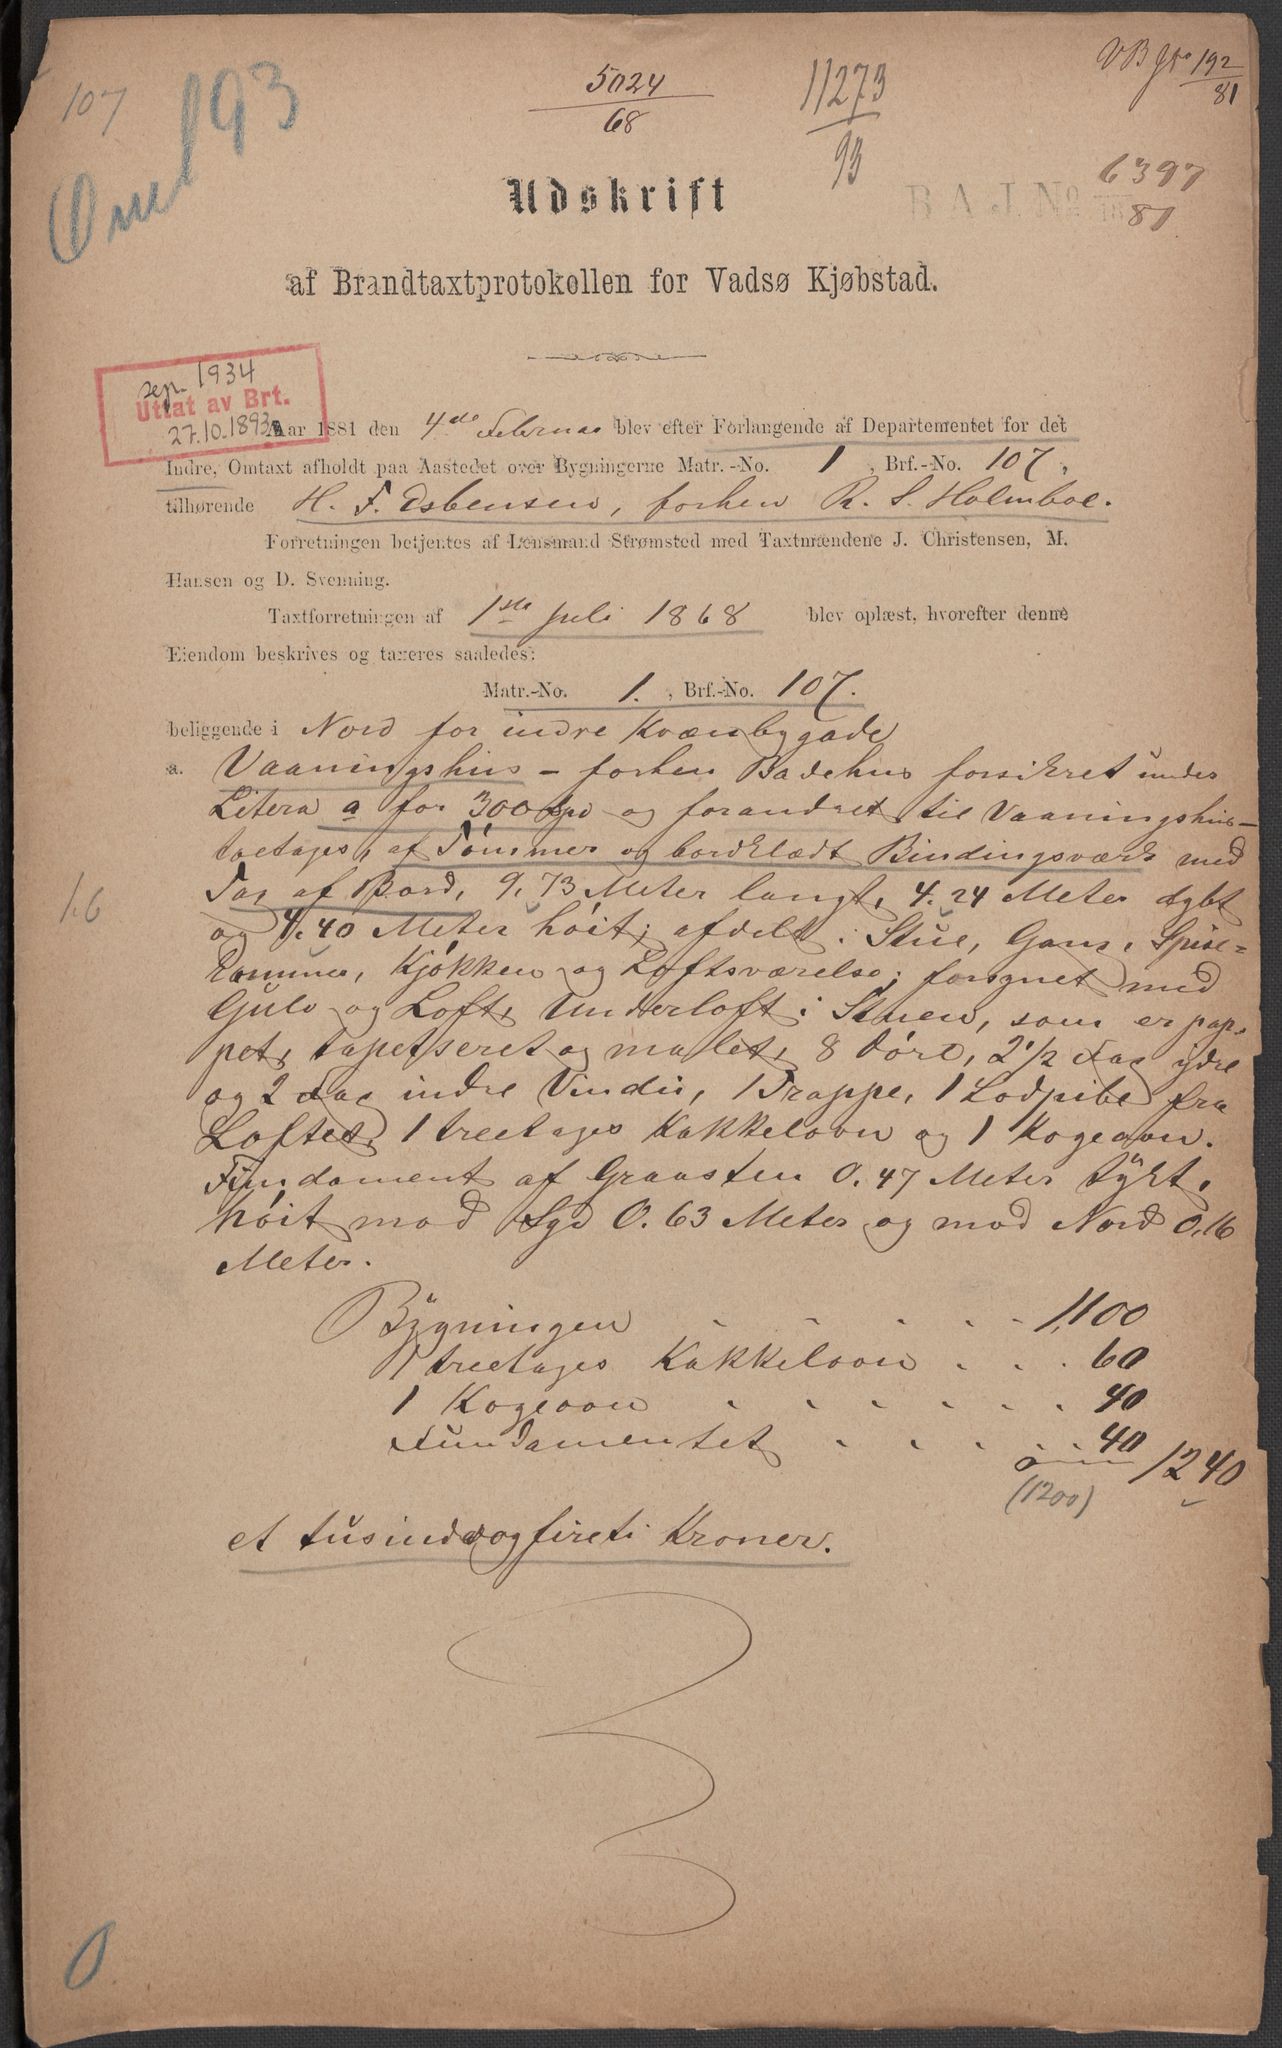 107
Oml 93
5024
68
11273
93
VB J No 192
81
B A J. No 6397
81
Udskrift
af Brandtaxtprotokollen for Vadsø Kjøbstad.
sep. 1934
Uttat av Brt.
27.10.1893
Aar 1881 den 4de Februar blev efter Forlangende af Departementet for det
Indre, Omtaxt afholdt paa Aastedet over Bygningerne Matr.-No. 1, Brf.-No. 107,
tilhørende H. F. Esbensen, forhen R. S. Holmboe.
Forretningen betjentes af Lensmand Strømsted med Taxtmændene J. Christensen, M.
Hansen og D. Svenning.
Taxtforretningen af 1ste Juli 1868 blev oplæst, hvorefter denne
Eiendom beskrives og taxeres saaledes:
Matr.-No. 1., Brf.-No. 107.
beliggende i Nord for indre Kvænbygade
a. Vaaningshus - forhen Badehus forsikret under
Litera a for 300 Spd og forandret til Vaaningshus -
toetages, af Tømmer og bordklædt Bindingsværk med
Tag af Bord, 9,73 Meter langt, 4.24 Meter dybt
1.6
og 4.40 Meter høit; afdelt i Stue, Gang, Spise-
kammer, Kjøkken og Loftsværelse; forsynet med
Gulv og Loft, Underloft i Stuen, som er pap-
pet, tapetseret og malet, 8 Døre, 2 1/2 Fag ydre
og 2 Fag indre Vindu, 1 Trappe, 1 Lodpibe fra
Loftet, 1 treetages Kakkelovn og 1 Kogeovn.
Fundament af Graasten 0.47 Meter tykt,
høit mod Syd 0.63 Meter og mod Nord 0.16
Meter.
Bygningen . . . . . . 1,100
1 treetages Kakkelovn . . . 60
1 Kogeovn . . . . . . 40
Fundamentet . . . . . 40
1240
(1200)
et tusinde og fireti Kroner.
0.